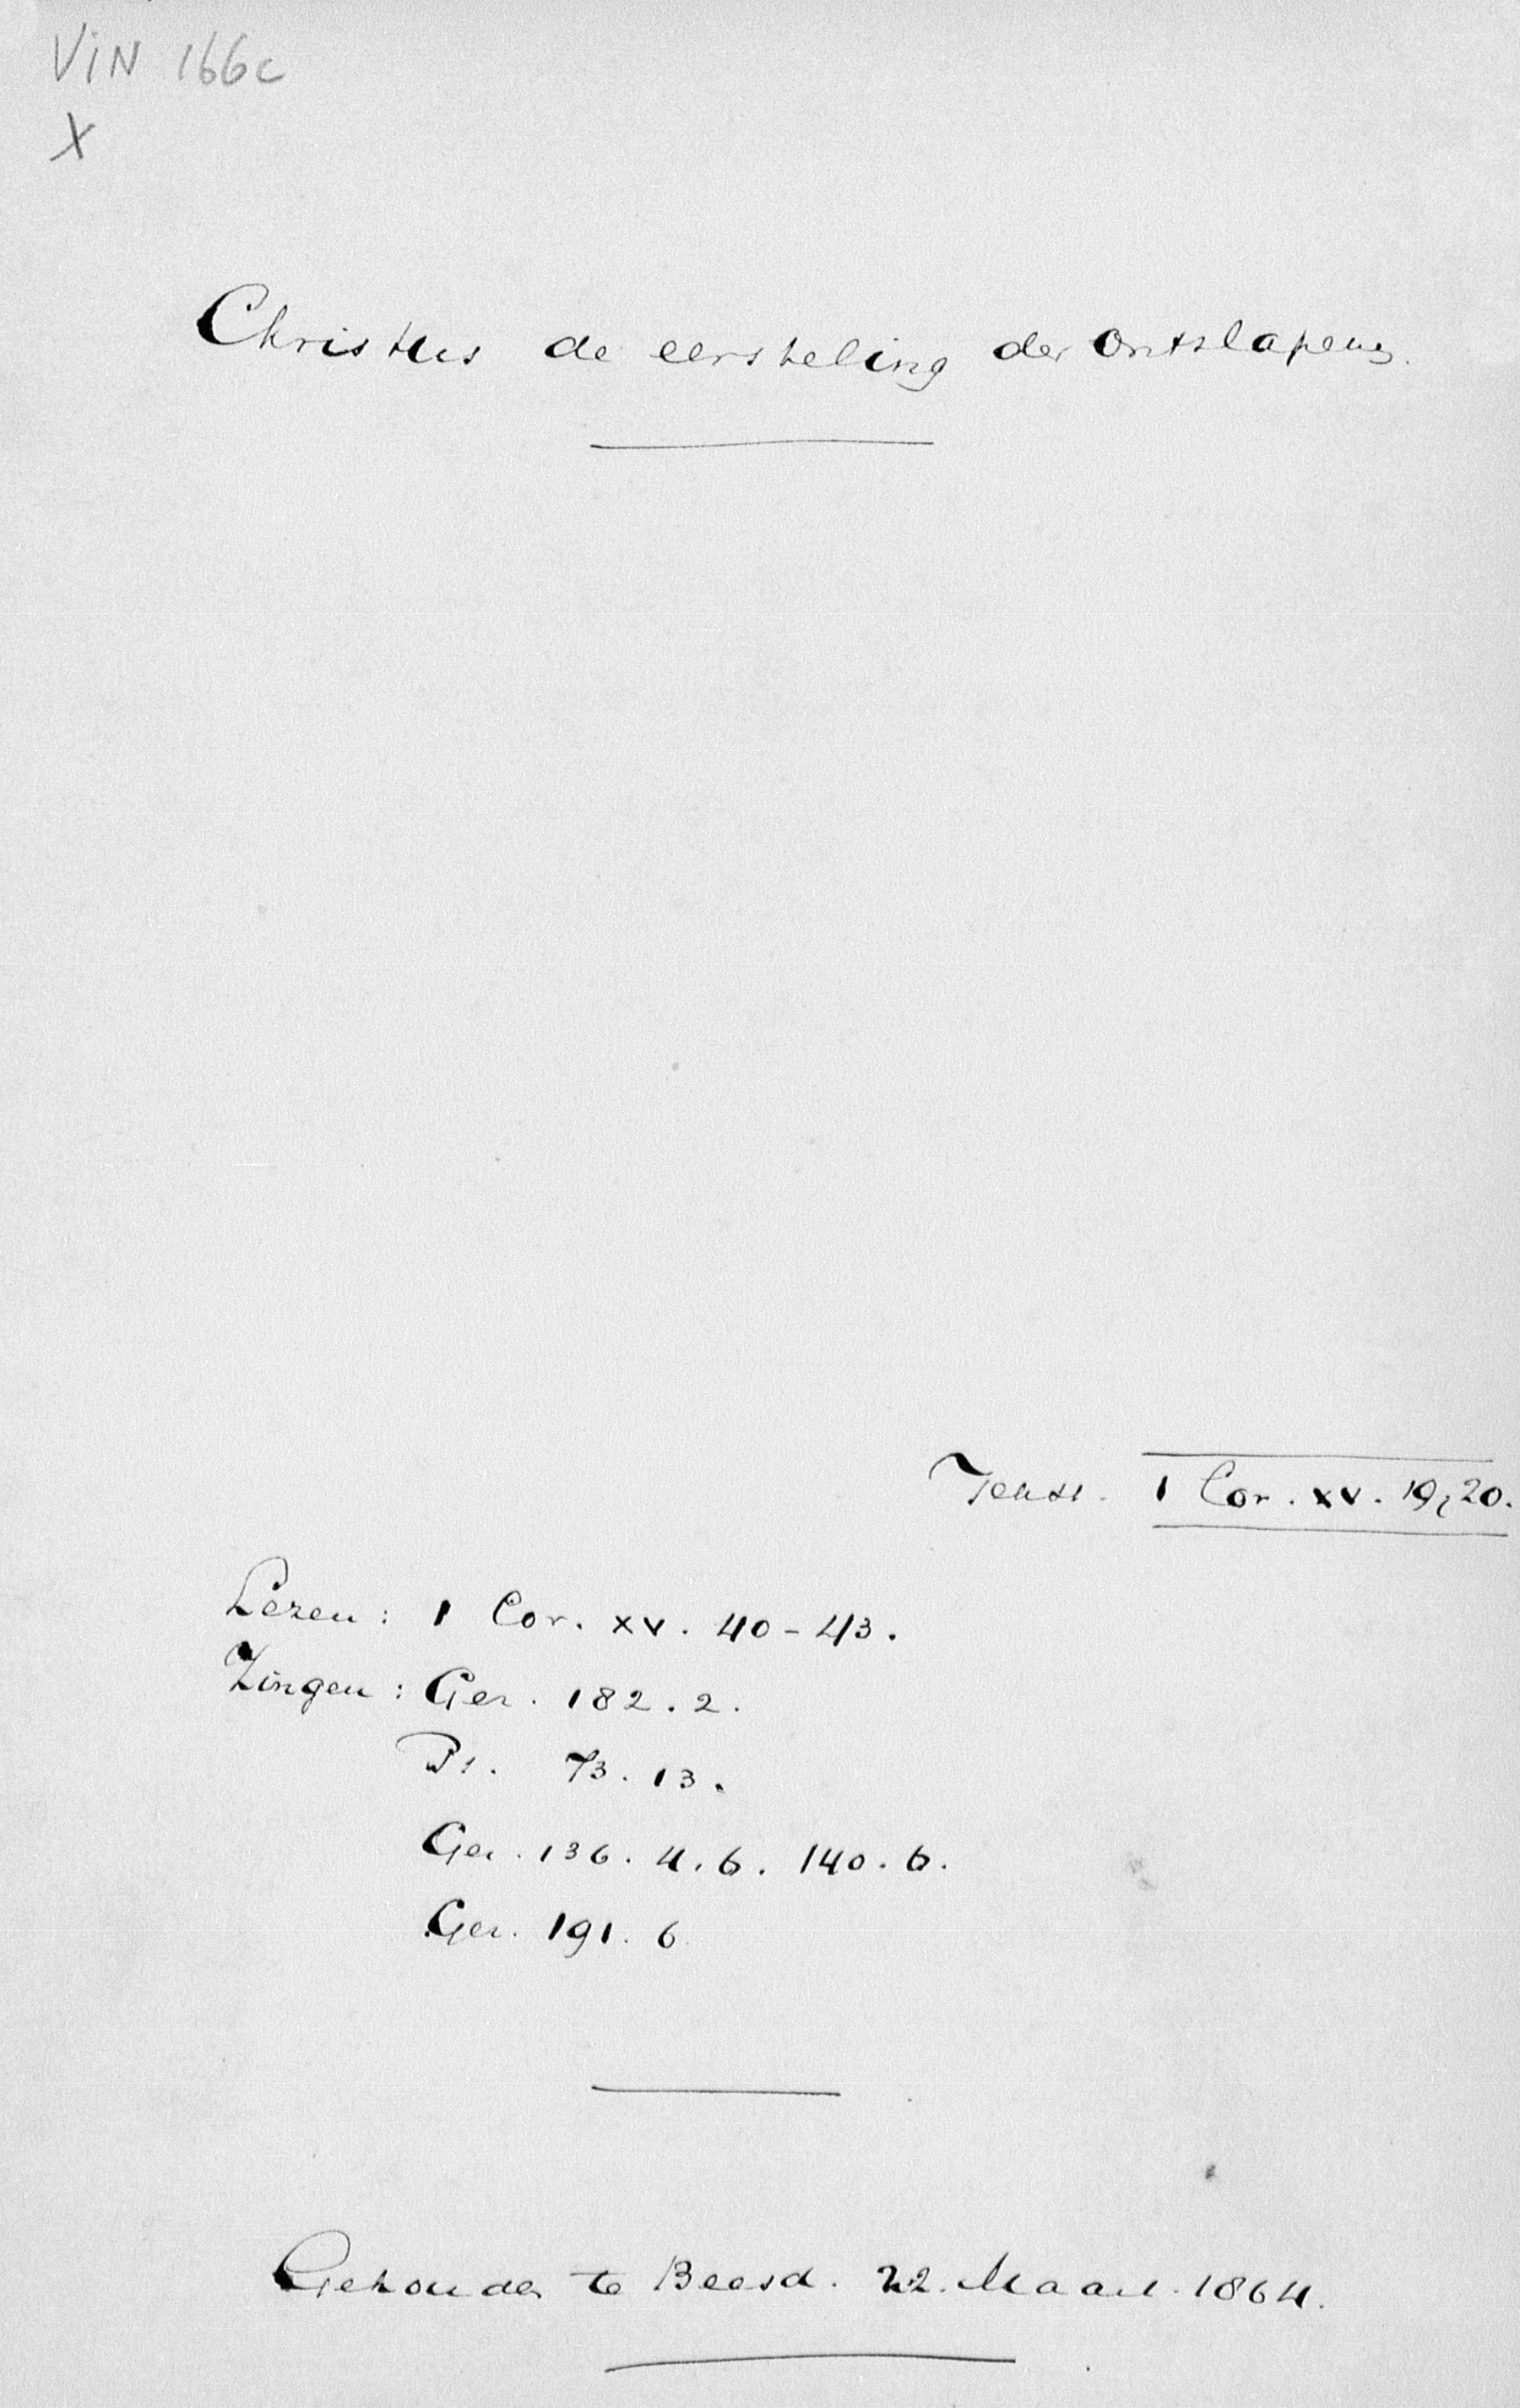 VIN 166c
X
Christus de eersteling der Ontslapens.
Tekst. 1 Cor. XV. 19, 20.
Lezen: 1 Cor. XV. 40-43.
Zingen: Gez. 182. 2.
Ps. 73. 13.
Gez. 136. 4. 6. 140. 6.
Gez. 191. 6
Gehouden te Beesd. 22. Maart. 1864.